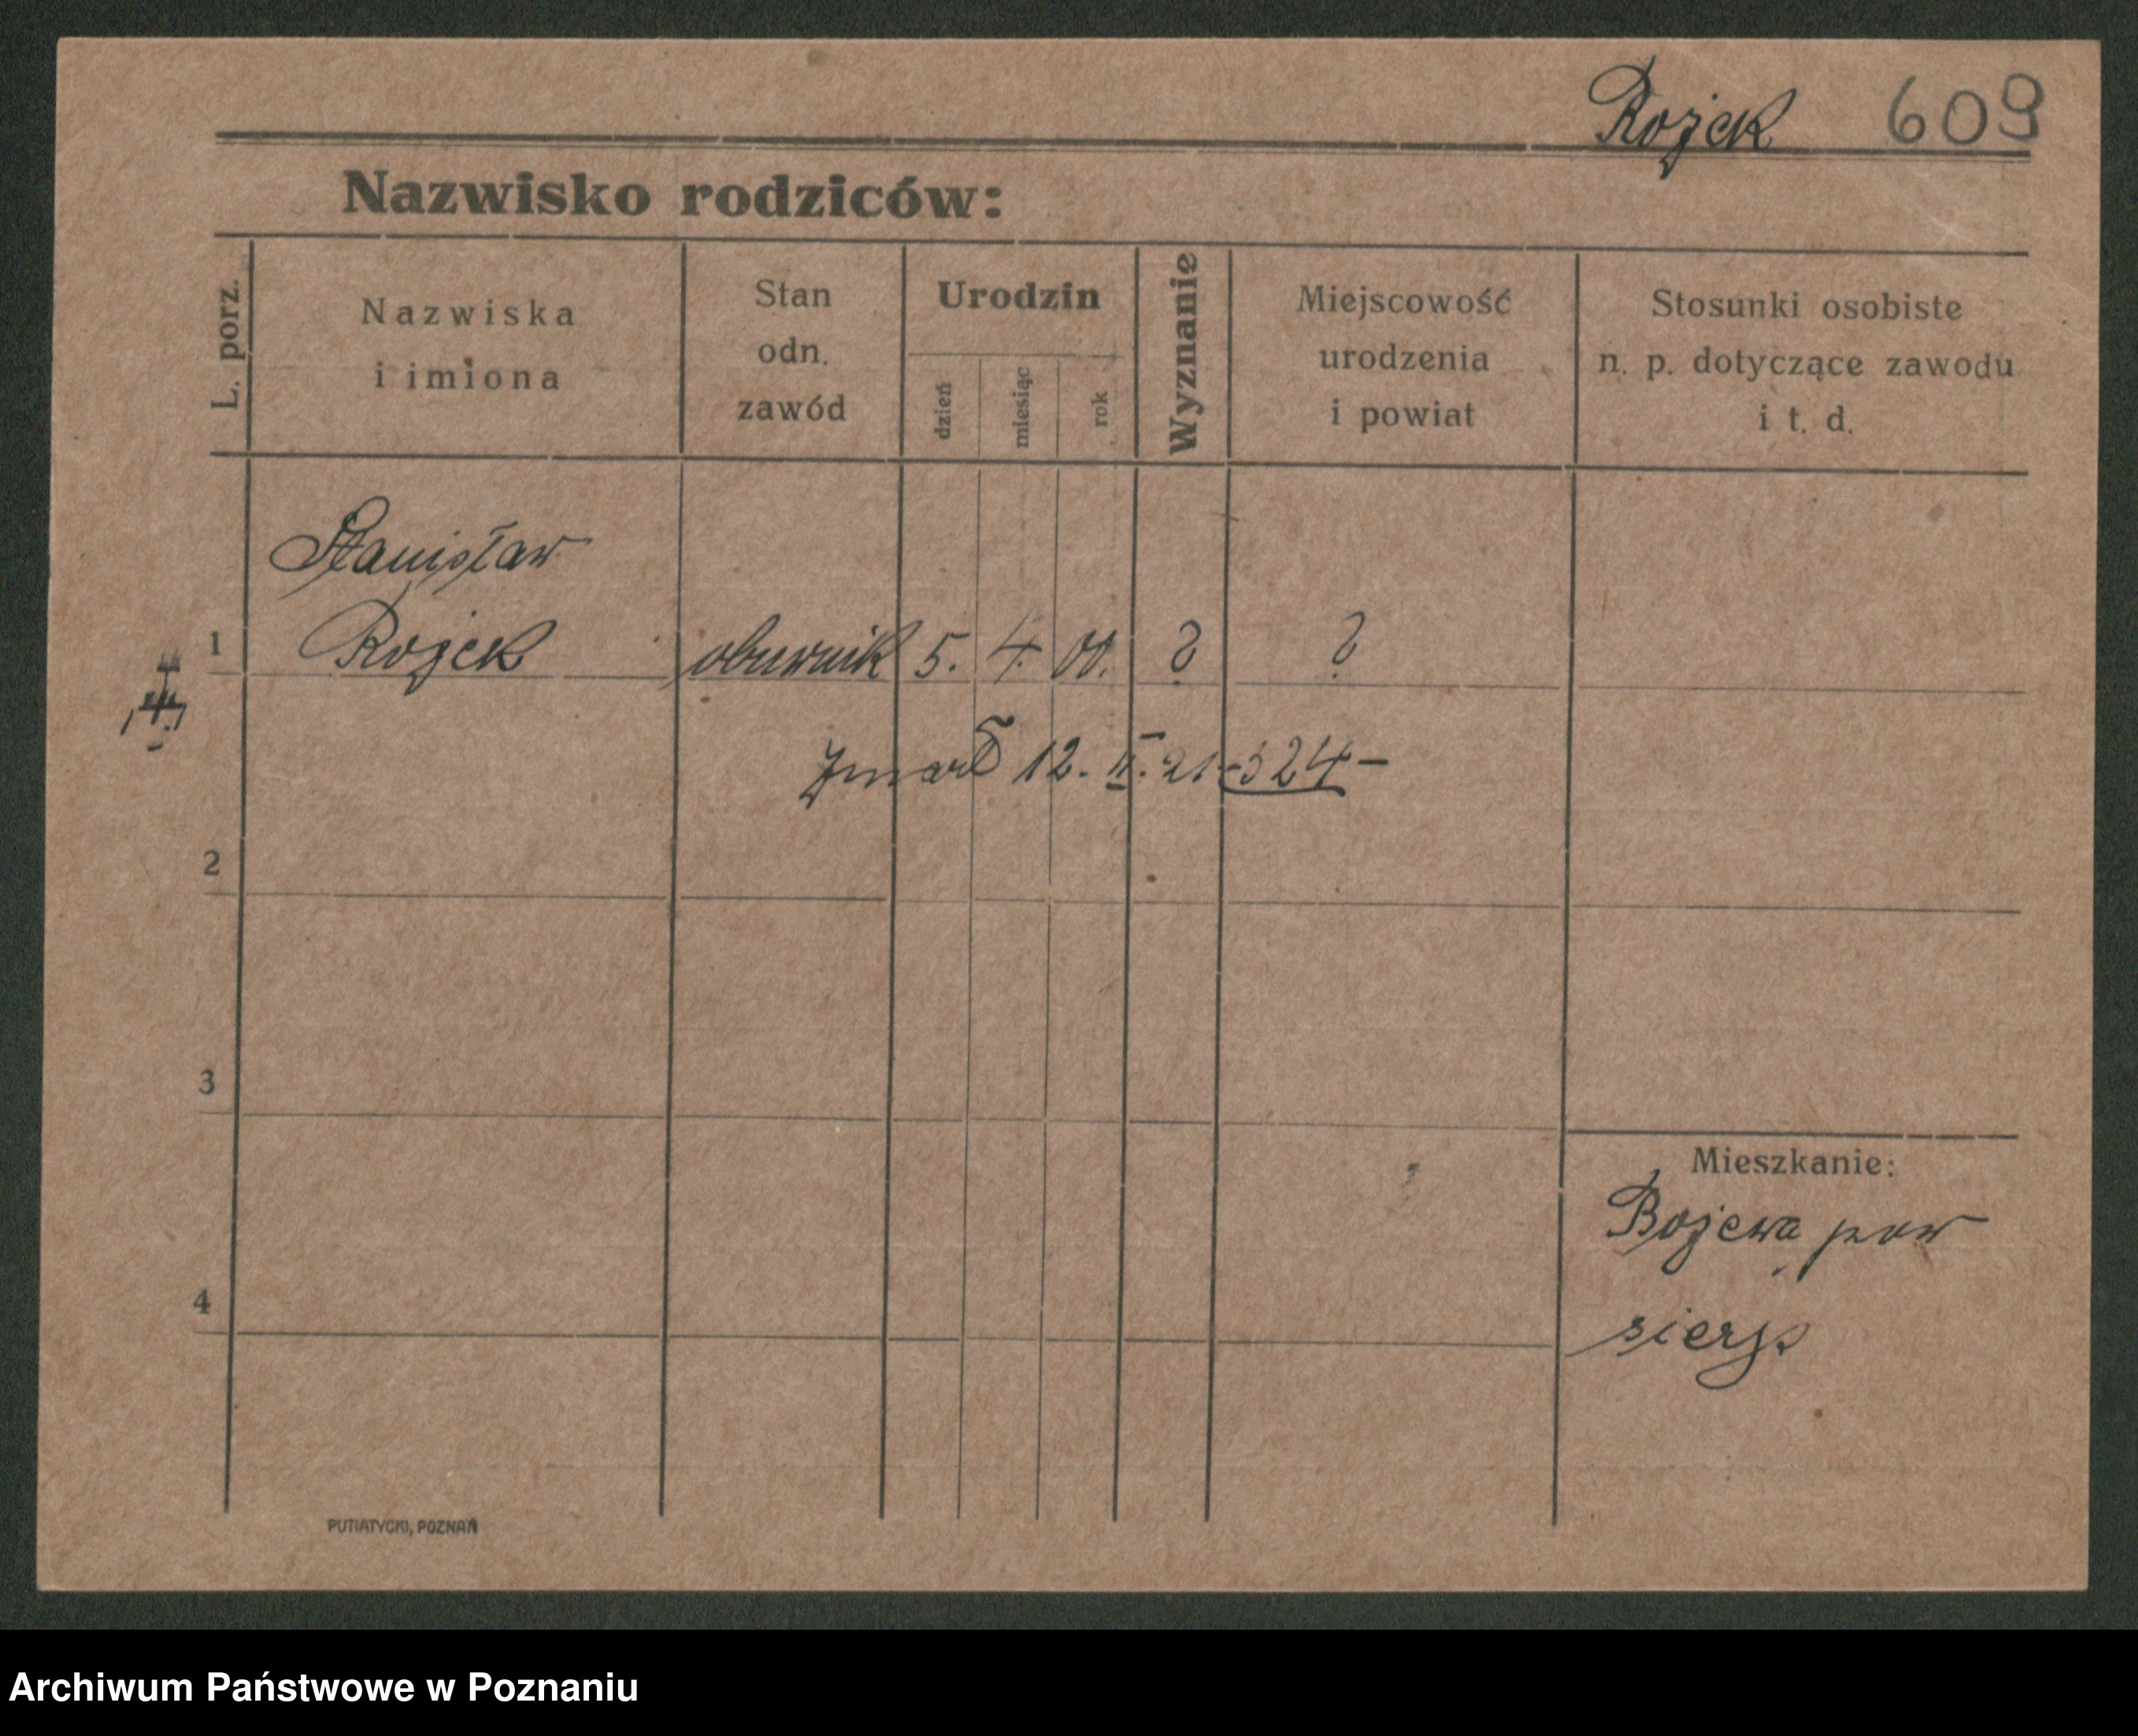 Rojek 609
Nazwisko rodziców:
L. porz.
Nazwiska
i imiona
Stan
odn.
zawód
Urodzin
dzień
miesiąc
rok
Wyznanie
Miejscowość
urodzenia
i powiat
Stosunki osobiste
n. p. dotyczące zawodu
i t. d.
Stanisław
1 Rojek obuwnik 5. 4. 00. ? ?
zmarł 12. II. 21 - 324 -
2
3
4
Mieszkanie:
Bojewa pow
sierp
PUTIATYCKI, POZNAŃ
Archiwum Państwowe w Poznaniu